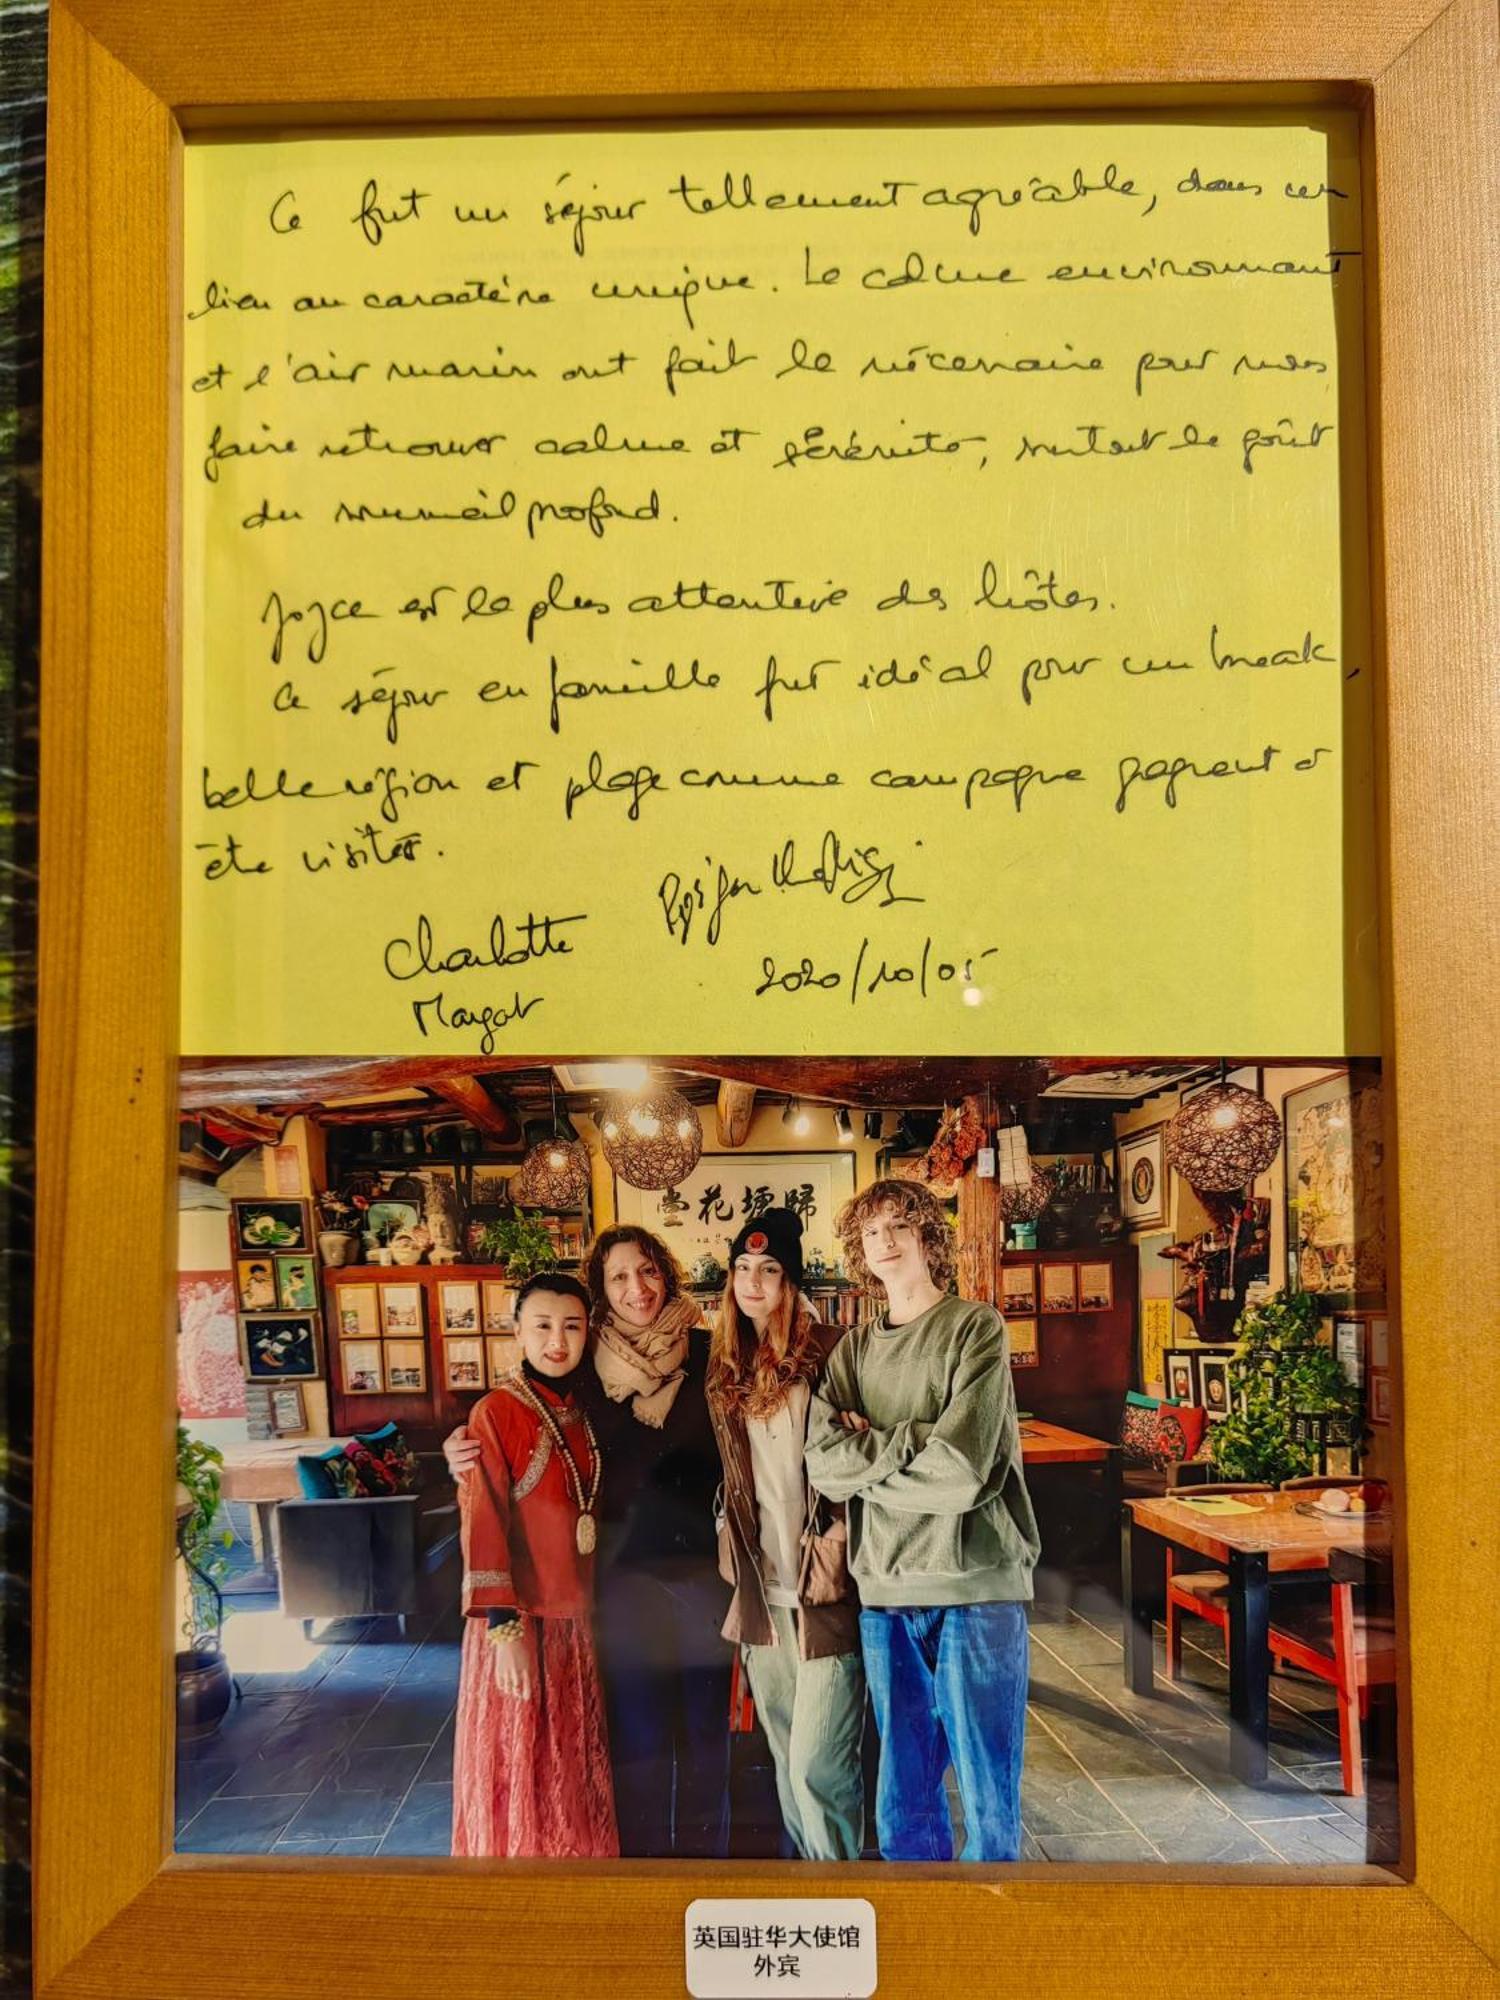 Ce fut un séjour tellement agréable, dans un
lieu au caractère unique. Le calme environnant
et l'air marin ont fait le nécessaire pour nous
faire retrouver calme et sérénité, surtout le goût
du sommeil profond.
Joyce est la plus attentive des hôtes.
Ce séjour en famille fut idéal pour un break,
belle région et plage comme campagne gagnent à
être visités.
Charlotte
Margot
2020/10/05
歸塘花堂
英国驻华大使馆
外宾